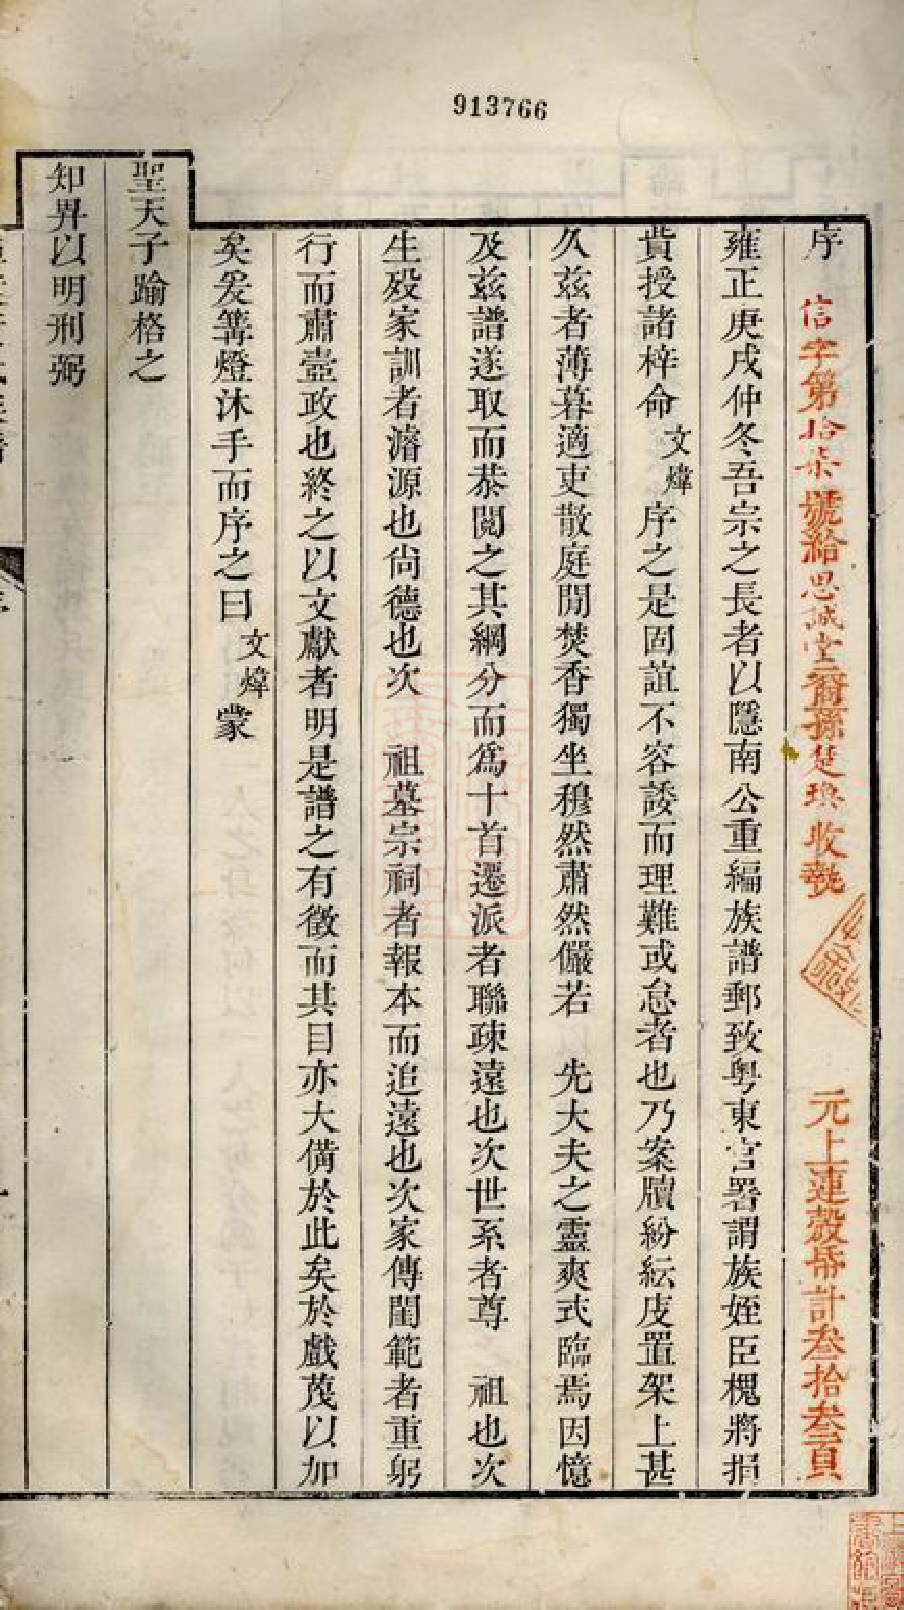 913766
序
信字第拾柒號給思誠堂裔孫楚珩收執
元上連殼帋計叁拾叁頁
雍正庚戌仲冬吾宗之長者以隱南公重編族譜郵致粤東官署謂族姪臣槐將捐
貲授諸梓命文煒序之是固誼不容諉而理難或怠者也乃案牘紛紜庋置架上甚
久茲者薄暮適吏散庭閒焚香獨坐穆然肅然儼若 先大夫之靈爽式臨焉因憶
及茲譜遂取而恭閱之其綱分而為十首遷派者聯疎遠也次世系者尊 祖也次
生殁家訓者濬源也尙德也次 祖墓宗祠者報本而追遠也次家傳閨範者重躬
行而肅壼政也終之以文獻者明是譜之有徵而其目亦大備於此矣於戲茂以加
矣爰篝燈沐手而序之曰文煒蒙
聖天子踰格之
知畀以明刑弼